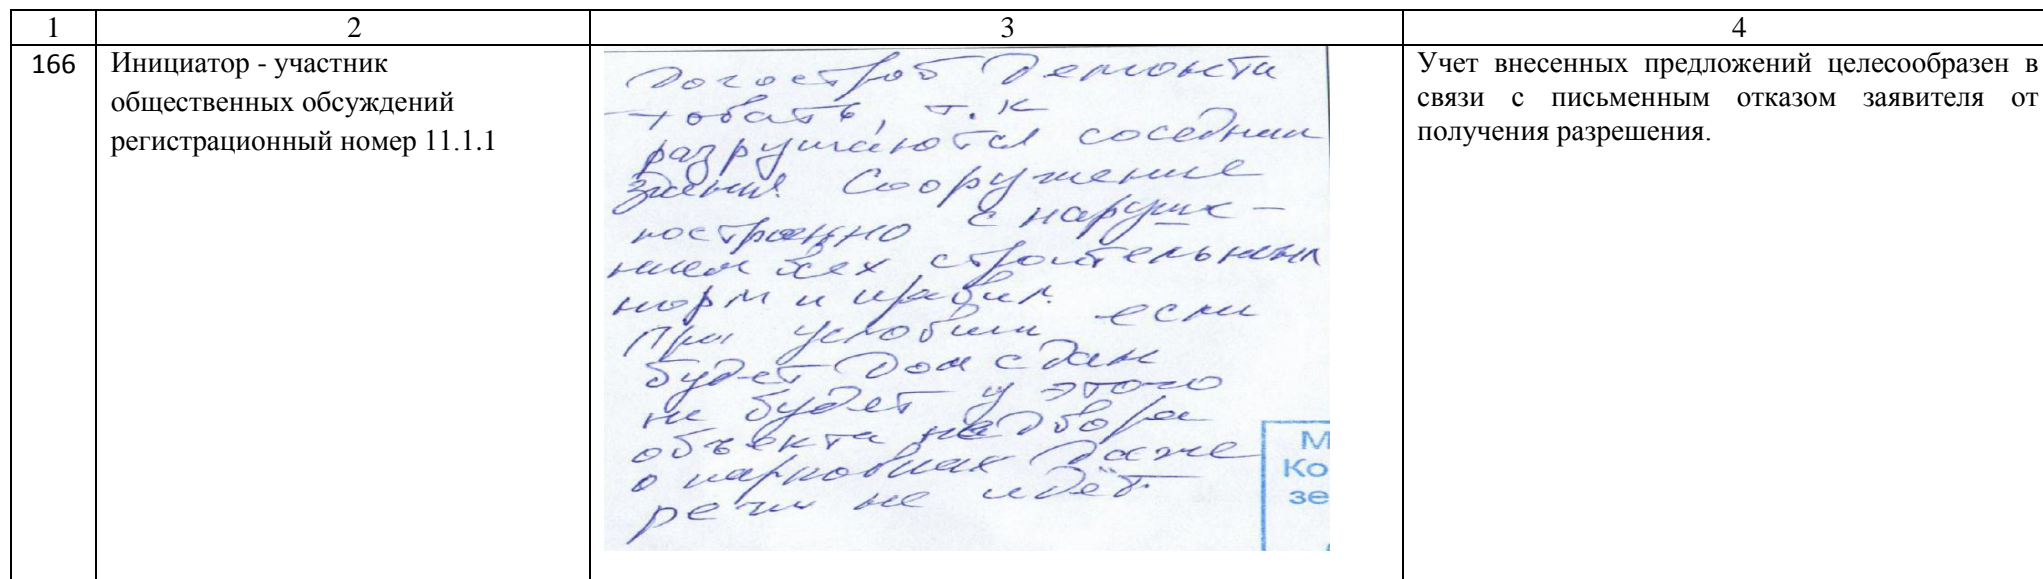 1
2
3
4
166
Инициатор - участник
общественных обсуждений
регистрационный номер 11.1.1
Догострой Демонти
ровать, т.к
разрушаются соседнии
здания. Сооружение
построенно с наруше-
нием всех строительных
норм и правил.
При условии если
будет Дом сдан
не будет у этого
объекта не двора
о парковках Даже
речи не идёт
М
Ко
зе
Учет внесенных предложений целесообразен в
связи с письменным отказом заявителя от
получения разрешения.